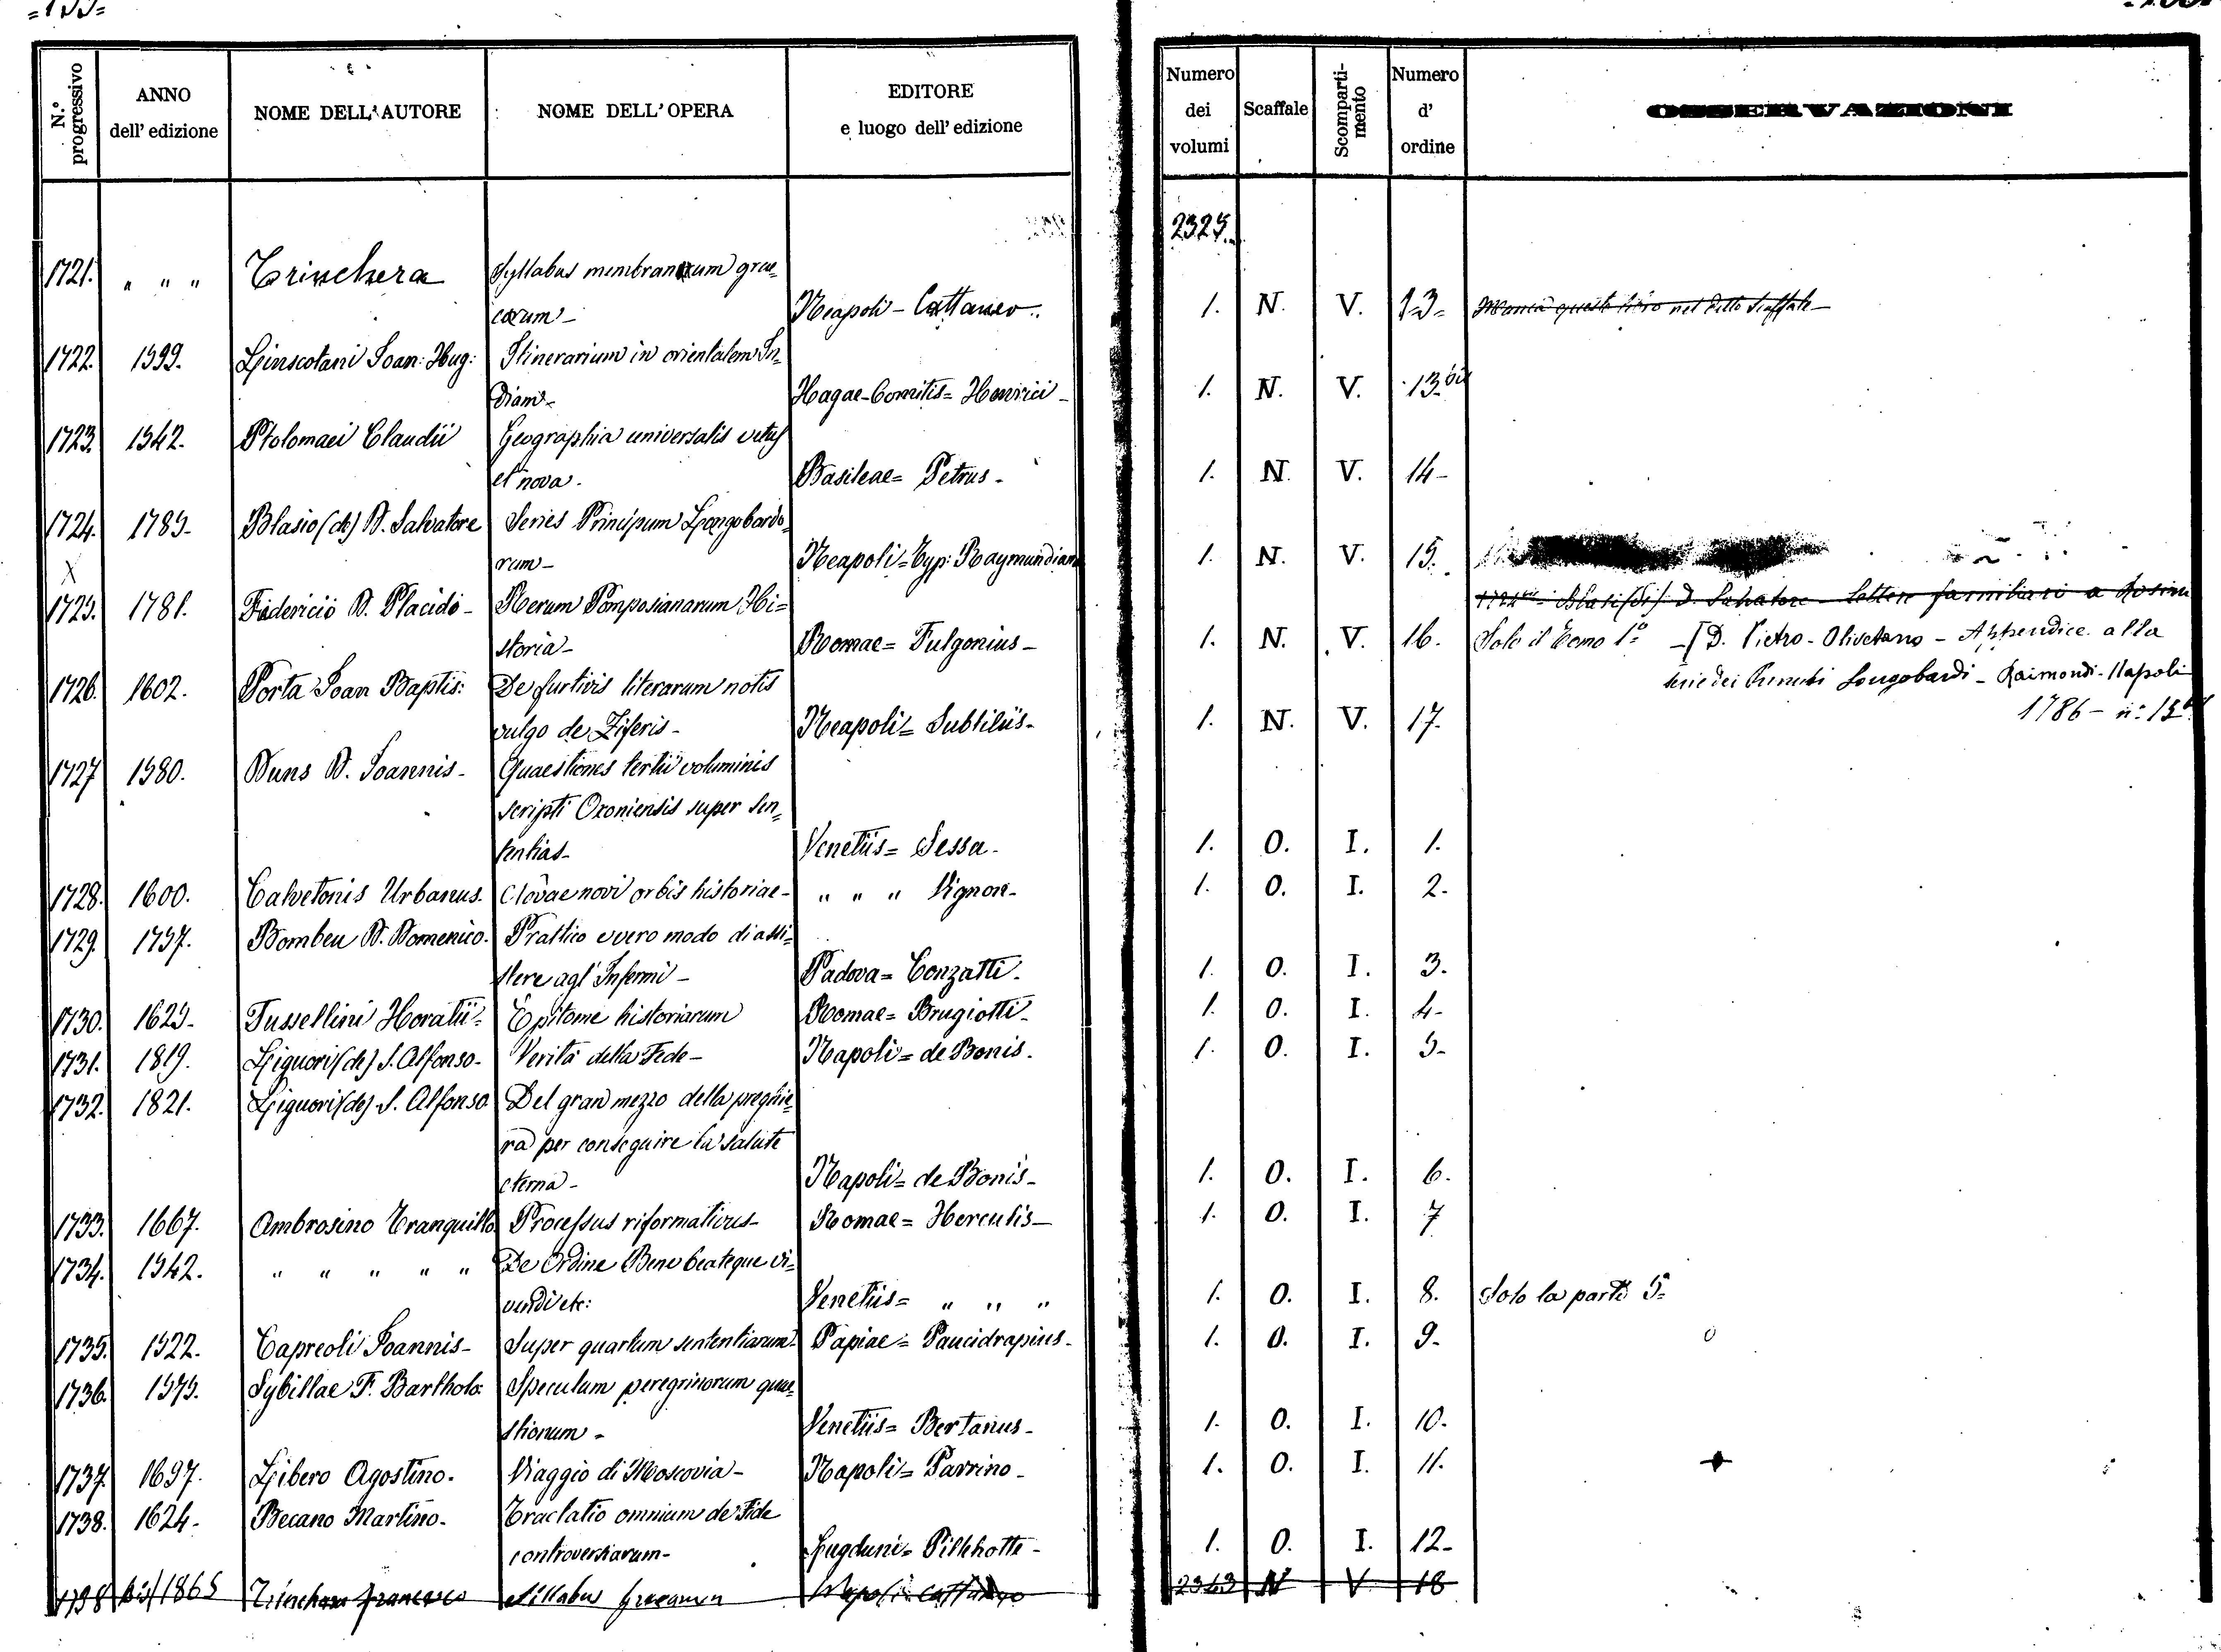 =155=
N.° progressivo
ANNO dell' edizione
NOME DELL' AUTORE
NOME DELL' OPERA
EDITORE e luogo dell' edizione
Numero dei volumi
Scaffale
Scomparti-mento
Numero d' ordine
OSSERVAZIONI
2325.
1721. " " " Trinchera Syllabus membranarum grae=
carum - Neapoli - Cattaneo. 1. N. V. 13= Manca questo libro nel detto Scaffale -
1722. 1599. Linscotani Joan: Hug: Itinerarium in orientalem In=
diam - Hagae-Comitis= Henrici - 1. N. V. 13 bis
1723. 1542. Ptolomaei Claudii Geographia universalis vetus
et nova. Basileae= Petrus - 1. N. V. 14-
1724. 1785- Blasio (de) D. Salvatore Series Principum Longobardo=
rum - Neapoli= Typ: Raymundiana 1. N. V. 15.
X
1724 bis - Blasi (di) D. Salvatore - Lettere familiari a
1725. 1781. Federicio D. Placido - Rerum Pomposianarum Hi=
storia - Romae= Fulgonius - 1. N. V. 16. Solo il Tomo 1° - [D. Pietro - Olivetano - Appendice alla
serie dei Longobardi - Raimondi - Napoli
1786 - n: 15
1726. 1602. Porta Joan Baptis: De furtivis literarum notis
vulgo de Ziferis - Neapoli= Subtiliis - 1. N. V. 17.
1727 1580. Duns D. Joannis - Quaestiones tertii voluminis
scripti Oxoniensis super Sen=
tentias - Venetiis= Sessa - 1. O. I. 1.
1728. 1600. Calvetonis Urbanus. Novae novi orbis historiae - " " " Vignon - 1. O. I. 2-
1729. 1757. Bombeu D. Domenico. Prattico overo modo di assi=
stere agl' Infermi - Padova= Conzatti. 1. O. I. 3.
1730. 1625- Tussellini Horatii - Epitome historiarum Romae= Brugiotti - 1. O. I. 4-
1731. 1819. Liguori (de) S. Alfonso - Verità della Fede - Napoli= de Bonis. 1. O. I. 5-
1732. 1821. Liguori (de) S. Alfonso Del gran mezzo della preghie=
ra per conseguire la salute
eterna - Napoli= de Bonis - 1. O. I. 6.
1733. 1667. Ambrosino Tranquillo Processus informativus - Romae= Herculis - 1. O. I. 7
1734. 1542. " " " " " De Ordine Bene beateque vi=
vendi etc: Venetiis= " " " 1. O. I. 8. Solo la parte 5ª
1735. 1522. Capreoli Joannis - Super quartum sententiarum - Papiae= Paucidrapius - 1. O. I. 9-
1736. 1575. Sybillae F. Bartholo: Speculum peregrinorum quae=
stionum - Venetiis= Bertanus - 1. O. I. 10-
1737. 1697. Libero Agostino. Viaggio di Moscovia - Napoli= Parrino - 1. O. I. 11.
1738. 1624. Becano Martino. Tractatio omnium de Fide
controversiarum - Lugduni= Pillehotte - 1. O. I. 12-
1738 bis 1865 Trinchera Francesco Sillabus Graecarum Napoli Cattaneo 2343 N V 18